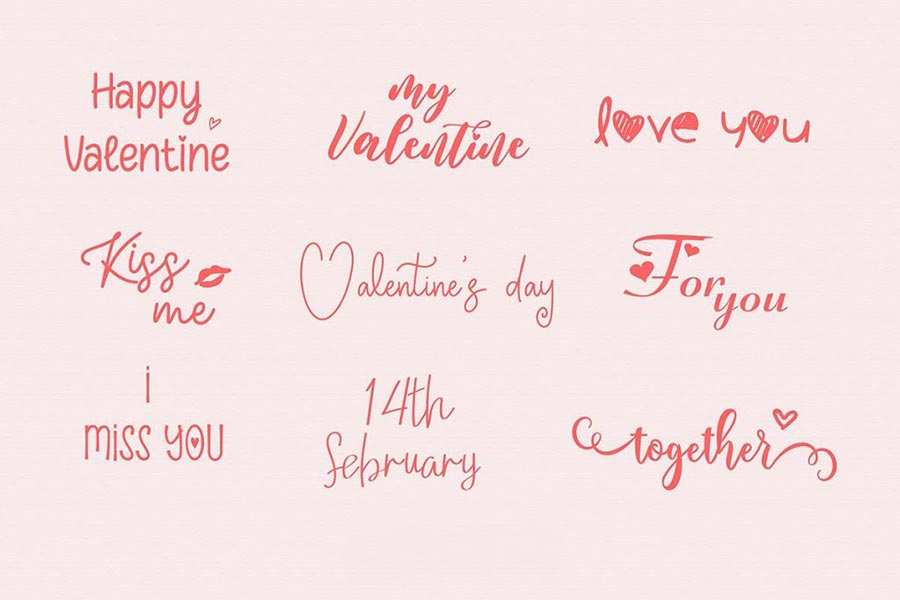 Happy
Valentine
my
Valentine
love you
Kiss
me
Valentine's day
For
you
i
miss you
14th
february
together